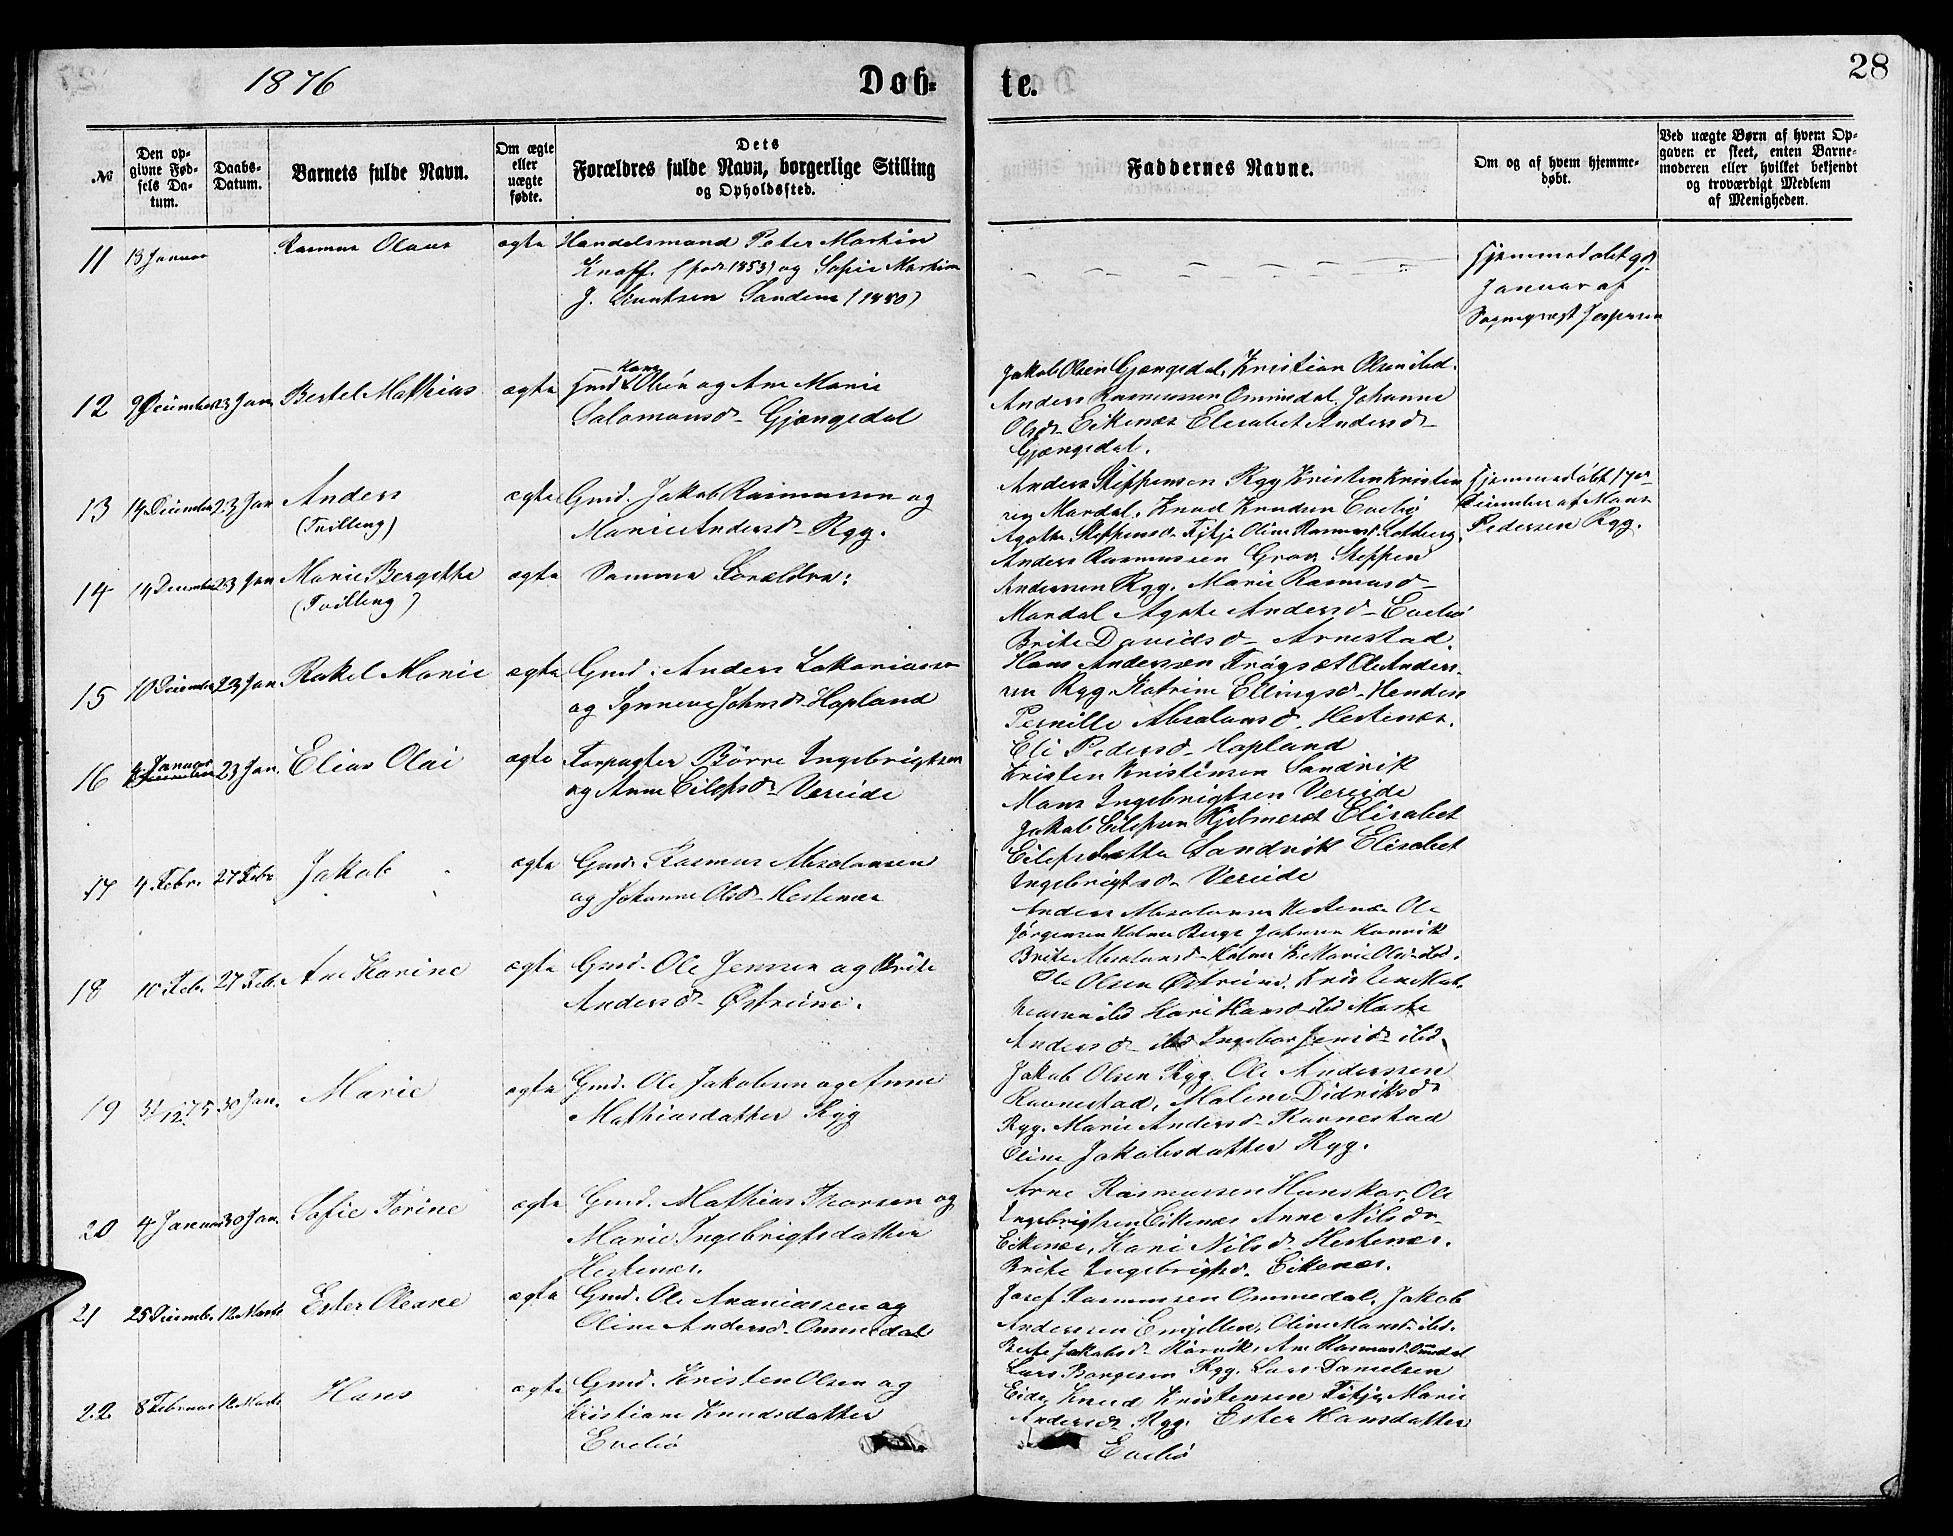 1876
Dob-
te.
28
№
Den op-
givne Fød-
sels Da-
tum.
Daabs-
Datum.
Barnets fulde Navn.
Om ægte
eller
uægte
fødte.
Dets
Forældres fulde Navn, borgerlige Stilling
og Opholdssted.
Faddernes Navne.
Om og af hvem hjemme-
døbt.
Ved uægte Børn af hvem Op-
gaven er skeet, enten Barne-
moderen eller hvilket bekjendt
og troværdigt Medlem
af Menigheden.
11 13 Januar Rasmus Olaus ægte Handelsmand Peter Martin
Knoff (født 1853) og Sofie Martine
J. Sandene (1850)
Hjemmedøbt
Januar af
Sogneprest Jespersen
12 9 December 23 Jan. Bertel Mathias ægte Gmd. Hans Olsen og Ane Marie
Salomonsd. Gjengedal
Jakob Olsen Gjengedal, Kristian Olsen ibd.
Anders Rasmussen Ommedal, Johanne
Olsd. Eikenæs Elisabet Andersd.
Gjengedal.
13 14 December 23 Jan Anders
(Tvilling)
ægte Gmd. Jakob Rasmussen og
Marie Andersd. Ryg.
Anders Steffensen Ryg Kristen Kristen
sen Mardal, Knud Knudsen Evebø
Agathe Steffensd. Fitje Oline Rasmusd.
Hjemmedøbt 17de
December af Mons
Pedersen Ryg.
14 14 December 23 Jan Marie Bergitha
(Tvilling)
ægte Samme Forældre:
Anders Rasmussen Grov Steffen
Andersen Ryg. Marie Rasmusd.
Mardal Agate Andersd. Evebø
Brite Davidsd. Arnestad.
15 10 December 23 Jan. Rakel Marie ægte Gmd. Anders Zakariassen
og Synneve Johnsd. Hopland
Hans Andersen Frøyset Ole Anders-
sen Ryg Katrine Ellingsd. Henden
Pernille Absalonsd. Hestenæs.
Eli Pedersd. Hopland
16 Januar 23 Jan. Elias Olai ægte Forpagter Børre Ingebrigtsen
og Anne Eilefsd. Vereide
Kristen Kristensen Sandvik
Mons Ingebrigtsen Vereide
Jakob Eilefsen Hjelmeset Elisabet
Eilefsdatter Sandvik Elisabet
Ingebrigtsd. Vereide
17 4 Febr. 27 Febr Jakob ægte Gmd. Rasmus Absalonsen
og Johanne Olsd. Hestenæs
Anders Absalonsen Hestenæs Ole
Jørgensen Holme Berge Johnsen
Brite Absalonsd. Holme Marie Olsd. ibd.
18 10 Feb. 27 Feb. Ane Karine ægte Gmd. Ole Jensen og Brite
Andersd. Østreim.
Ole Olsen Østreim. Kristen
ibd Kari Hansd. ibd Marte
Andersd. ibd Ingebor Jensd. ibd.
19 31/12 75 30 Jan. Marie ægte Gmd. Ole Jakobsen og Anne
Mathiasdatter Ryg
Jakob Olsen Ryg. Ole Anderssen
Ravnestad, Malene Didriksd.
Ryg. Marie Andersd. Ravnestad
Oline Jakobsdatter Ryg.
20 4 Januar 30 Jan. Sofie Torine ægte Gmd. Mathias Thorsen og
Marie Ingebrigtsdatter
Hestenæs.
Arne Rasmussen Hunskar, Ole
Ingebrigtsen Eikenæs Anne Nilsd.
Eikenæs, Kari Nilsd. Hestenæs.
Brite Ingebrigtsd. Eikenæs.
21 25 December 12 Marts Ester Oleane ægte Gmd. Ole Ananiassen og
Oline Andersd. Ommedal
Josef Rasmussen Ommedal, Jakob
Anderssen Oline Hansd. ibd.
Jakobsd. Ane Rasmusd. Ommedal
22 8 Februar 12 Marts Hans ægte Gmd. Kristen Olsen og
Kristiane Knudsdatter
Evebø
Lars Ryg. Lars Danielsen
Eide, Knud Kristensen Fitje Marie
Andersd. Ryg. Ester Hansdatter
Evebø